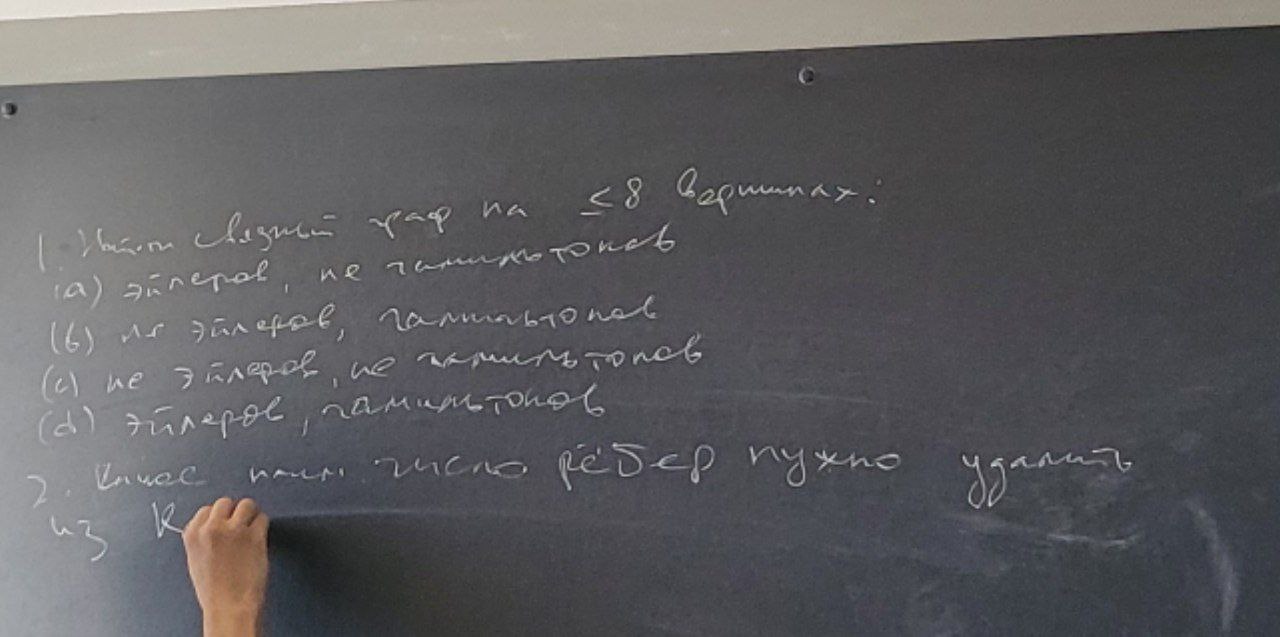 1. Найти связный граф на ≤8 вершинах:
(a) эйлеров, не гамильтонов
(b) не эйлеров, гамильтонов
(c) не эйлеров, не гамильтонов
(d) эйлеров, гамильтонов
2. Какое наим. число рёбер нужно удалить
из K